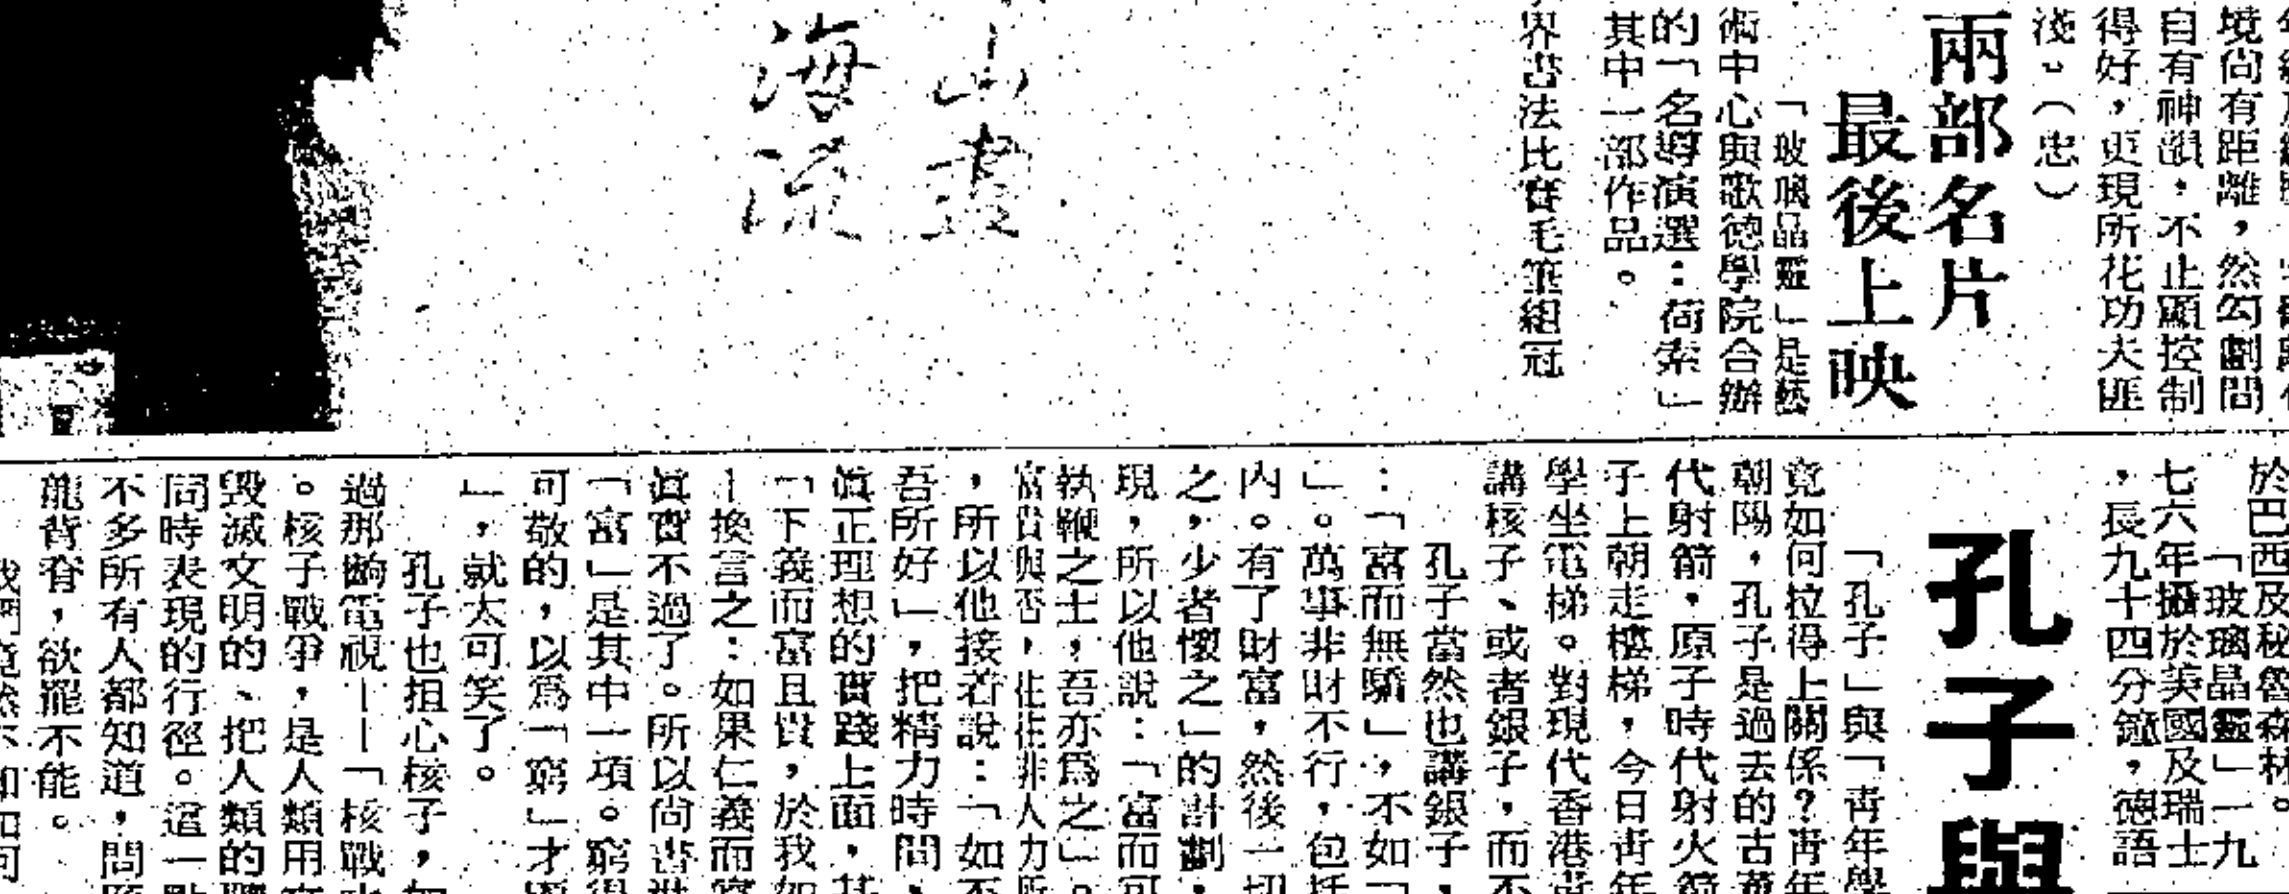 境尚有距離，然勾劃間
自有神韻，不止顯控制
得好，更現所花功夫匪
淺。（忠）
兩部名片
最後上映
「玻璃晶靈」是藝
術中心與歌德學院合辦
的「名導演選：荷索」
其中一部作品。
界書法比賽毛筆組冠
山盡
海流
於巴西及秘魯森林。
「玻璃晶靈」一九
七六年攝於美國及瑞士
，長九十四分鐘，德語
孔子與
「孔子」與「青年學
竟如何拉得上關係？青年
朝陽，孔子是過去的古董
代射箭，原子時代射火箭
子上朝走樓梯，今日青年
學坐電梯。對現代香港青
講核子、或者銀子，而不
孔子當然也講銀子，
：「富而無驕」，不如「
」。萬事非財不行，包括
內。有了財富，然後一切
之，少者懷之」的計劃，
現，所以他說：「富而可
執鞭之士，吾亦為之」。
富貴與否，往往非人力所
，所以他接着說：「如不
吾所好」，把精力時間，
眞正理想的實踐上面，其
「下義而富且貴，於我如
－換言之：如果仁義而富
眞實不過了。所以尚書洪
「富」是其中一項。窮得
可敬的，以爲「窮」才
」，就太可笑了。
孔子也担心核子，如
過那齣電視－－「核戰
。核子戰爭，是人類用
毀滅文明的、把人類的
同時表現的行徑。這一點
不多所有人都知道，問題
龍背脊，欲罷不能。
我們竟然不知如何